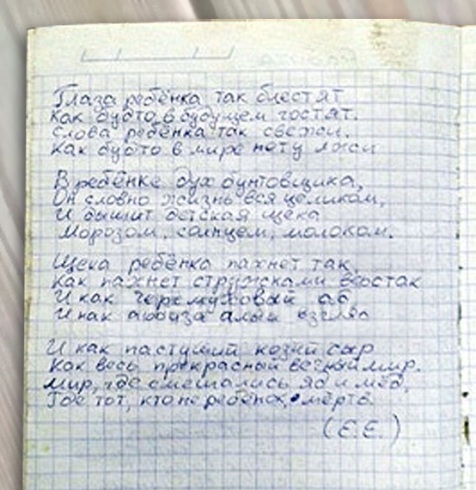 Глаза ребёнка так блестят
Как будто в будущем гостят.
Слова ребёнка так свежи.
Как будто в мире нету лжи
В ребёнке дух бунтовщика,
Он словно жизнь вся целиком,
И дышит детская щека
Морозом, солнцем, молоком.
Щека ребёнка пахнет так,
Как пахнет стружками верстак
И как черёмуховый ад
И как арбуза алый взгляд
И как пастуший козий сыр
Как весь прекрасный вечный мир.
Мир, где смешались яд и мёд,
Где тот, кто не ребёнок, мёртв.
(Е.Е.)